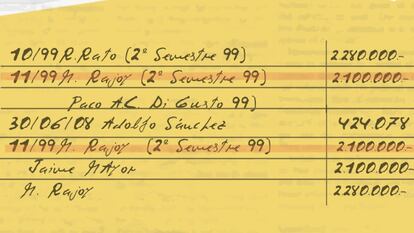 10/99 R. Rato (2º Semestre 99) 2280.000.-
11/99 M. Rajoy (2º Semestre 99) 2.100.000.-
Paco AC. Di Gusto 99)
30/06/08 Adolfo Sánchez 424.078
11/99 M. Rajoy (2º Semestre 99) 2.100.000.-
Jaime Mayor 2.100.000.-
M. Rajoy 2280.000.-